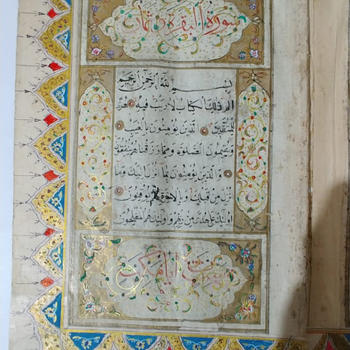 سورة البقرة
بسم الله الرحمن الرحيم
الم ذلك الكتاب لا ريب فيه هدى
للمتقين الذين يؤمنون بالغيب
ويقيمون الصلوة ومما رزقناهم ينفقون
والذين يؤمنون بما انزل اليك وما
انزل من قبلك وبالاخرة هم يوقنون
اولئك على هدى من ربهم واولئك هم المفلحون